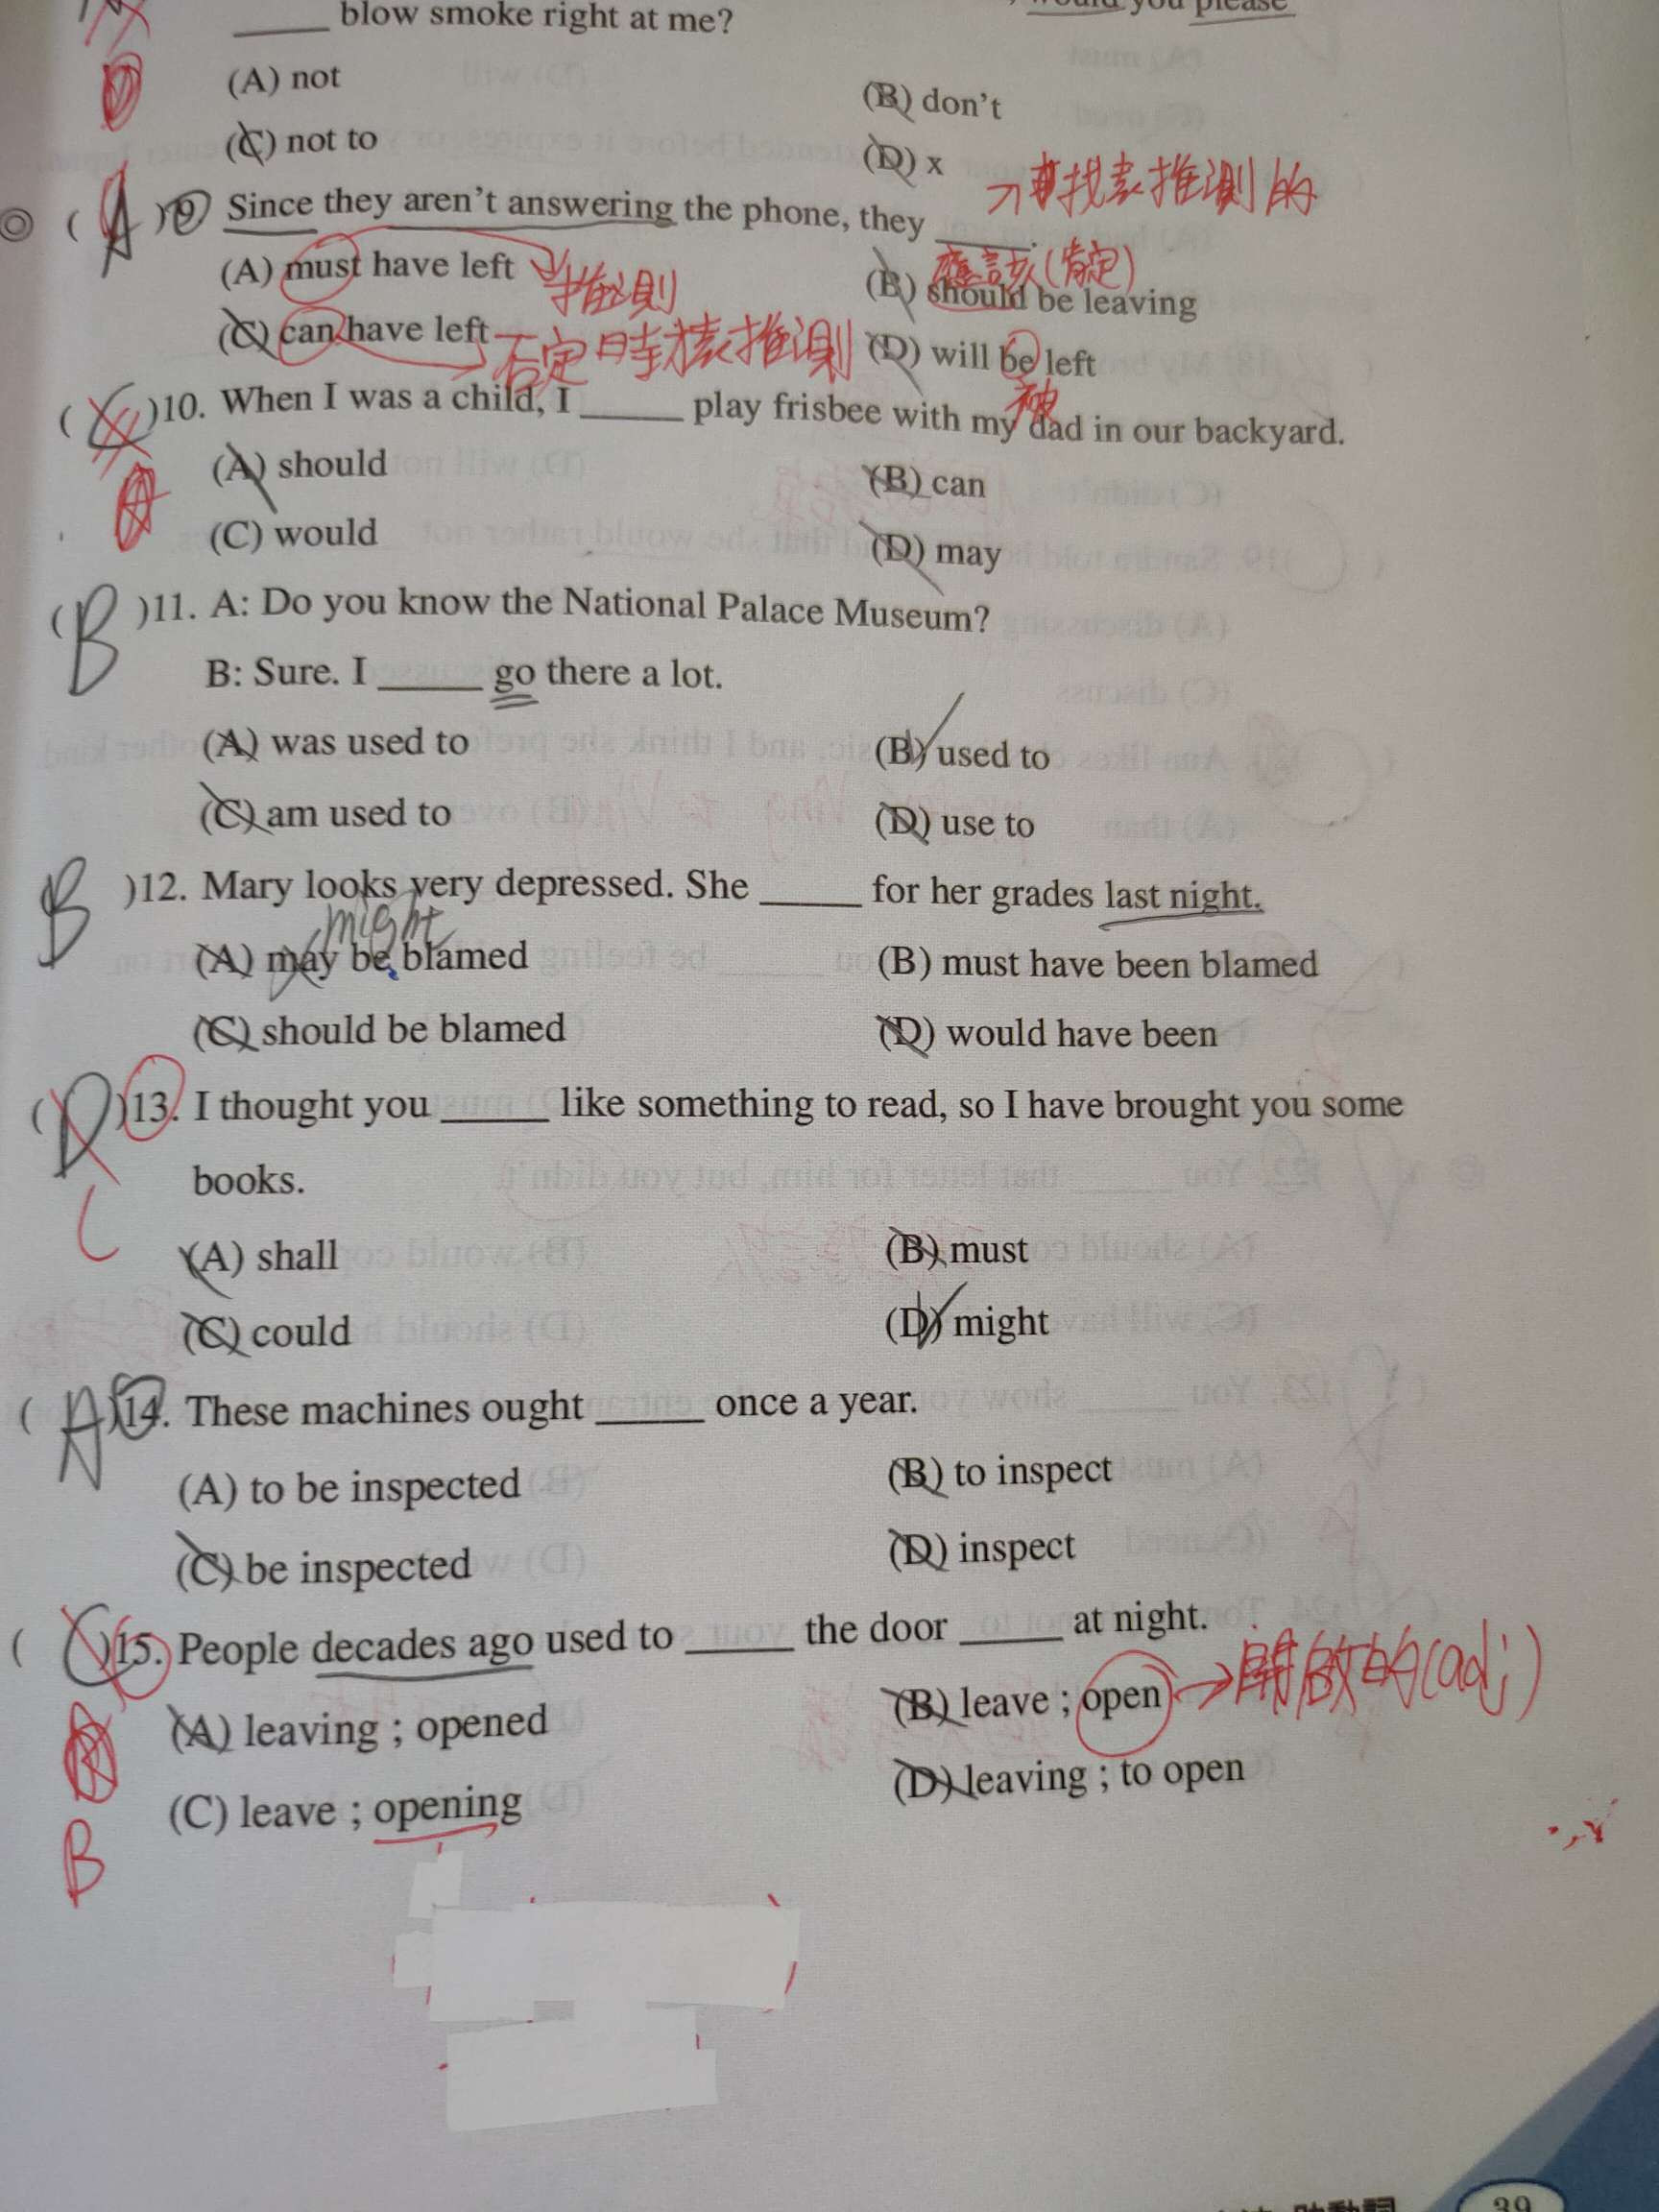 would you please
blow smoke right at me?
(A) not
(B) don't
(C) not to
(D) x
找表推測的
( A )9. Since they aren't answering the phone, they _____.
(A) must have left
推測
應該(肯定)
(B) should be leaving
(C) can have left
否定時表推測
(D) will be left
被
( C )10. When I was a child, I _____ play frisbee with my dad in our backyard.
(A) should
(B) can
(C) would
(D) may
( B )11. A: Do you know the National Palace Museum?
B: Sure. I _____ go there a lot.
(A) was used to
(B) used to
(C) am used to
(D) use to
B )12. Mary looks very depressed. She _____ for her grades last night.
might
(A) may be blamed
(B) must have been blamed
(C) should be blamed
(D) would have been
( D )13. I thought you _____ like something to read, so I have brought you some
books.
C
(A) shall
(B) must
(C) could
(D) might
( A )14. These machines ought _____ once a year.
(A) to be inspected
(B) to inspect
(C) be inspected
(D) inspect
( C )15. People decades ago used to _____ the door _____ at night.
(A) leaving ; opened
(B) leave ; open
開放的(adj)
(C) leave ; opening
(D) leaving ; to open
B
助動詞
39